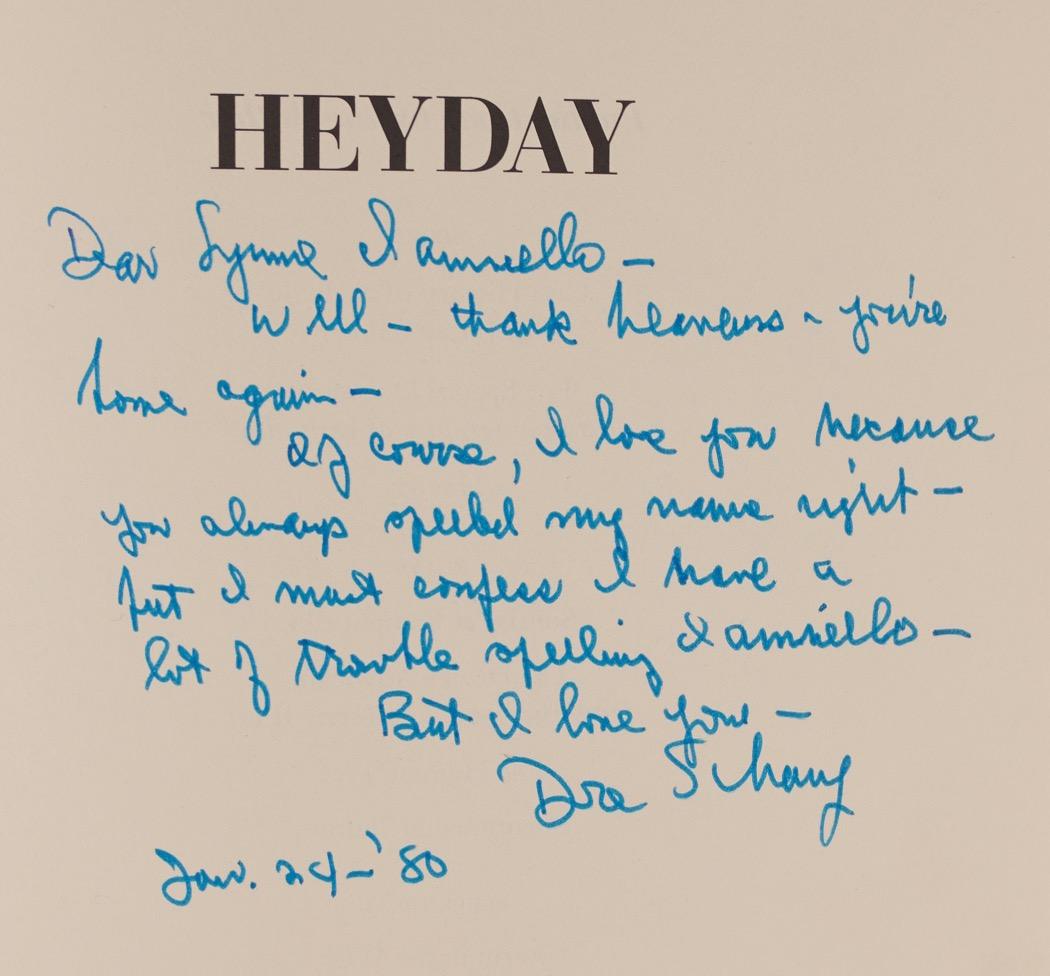 HEYDAY
Dear Lynne Ianniello —
Well — thank heavens - you're
home again —
Of course, I love you because
you always spelled my name right —
but I must confess I have a
lot of trouble spelling Ianniello —
But I love you —
Dore Schary
Jan. 24 — '80